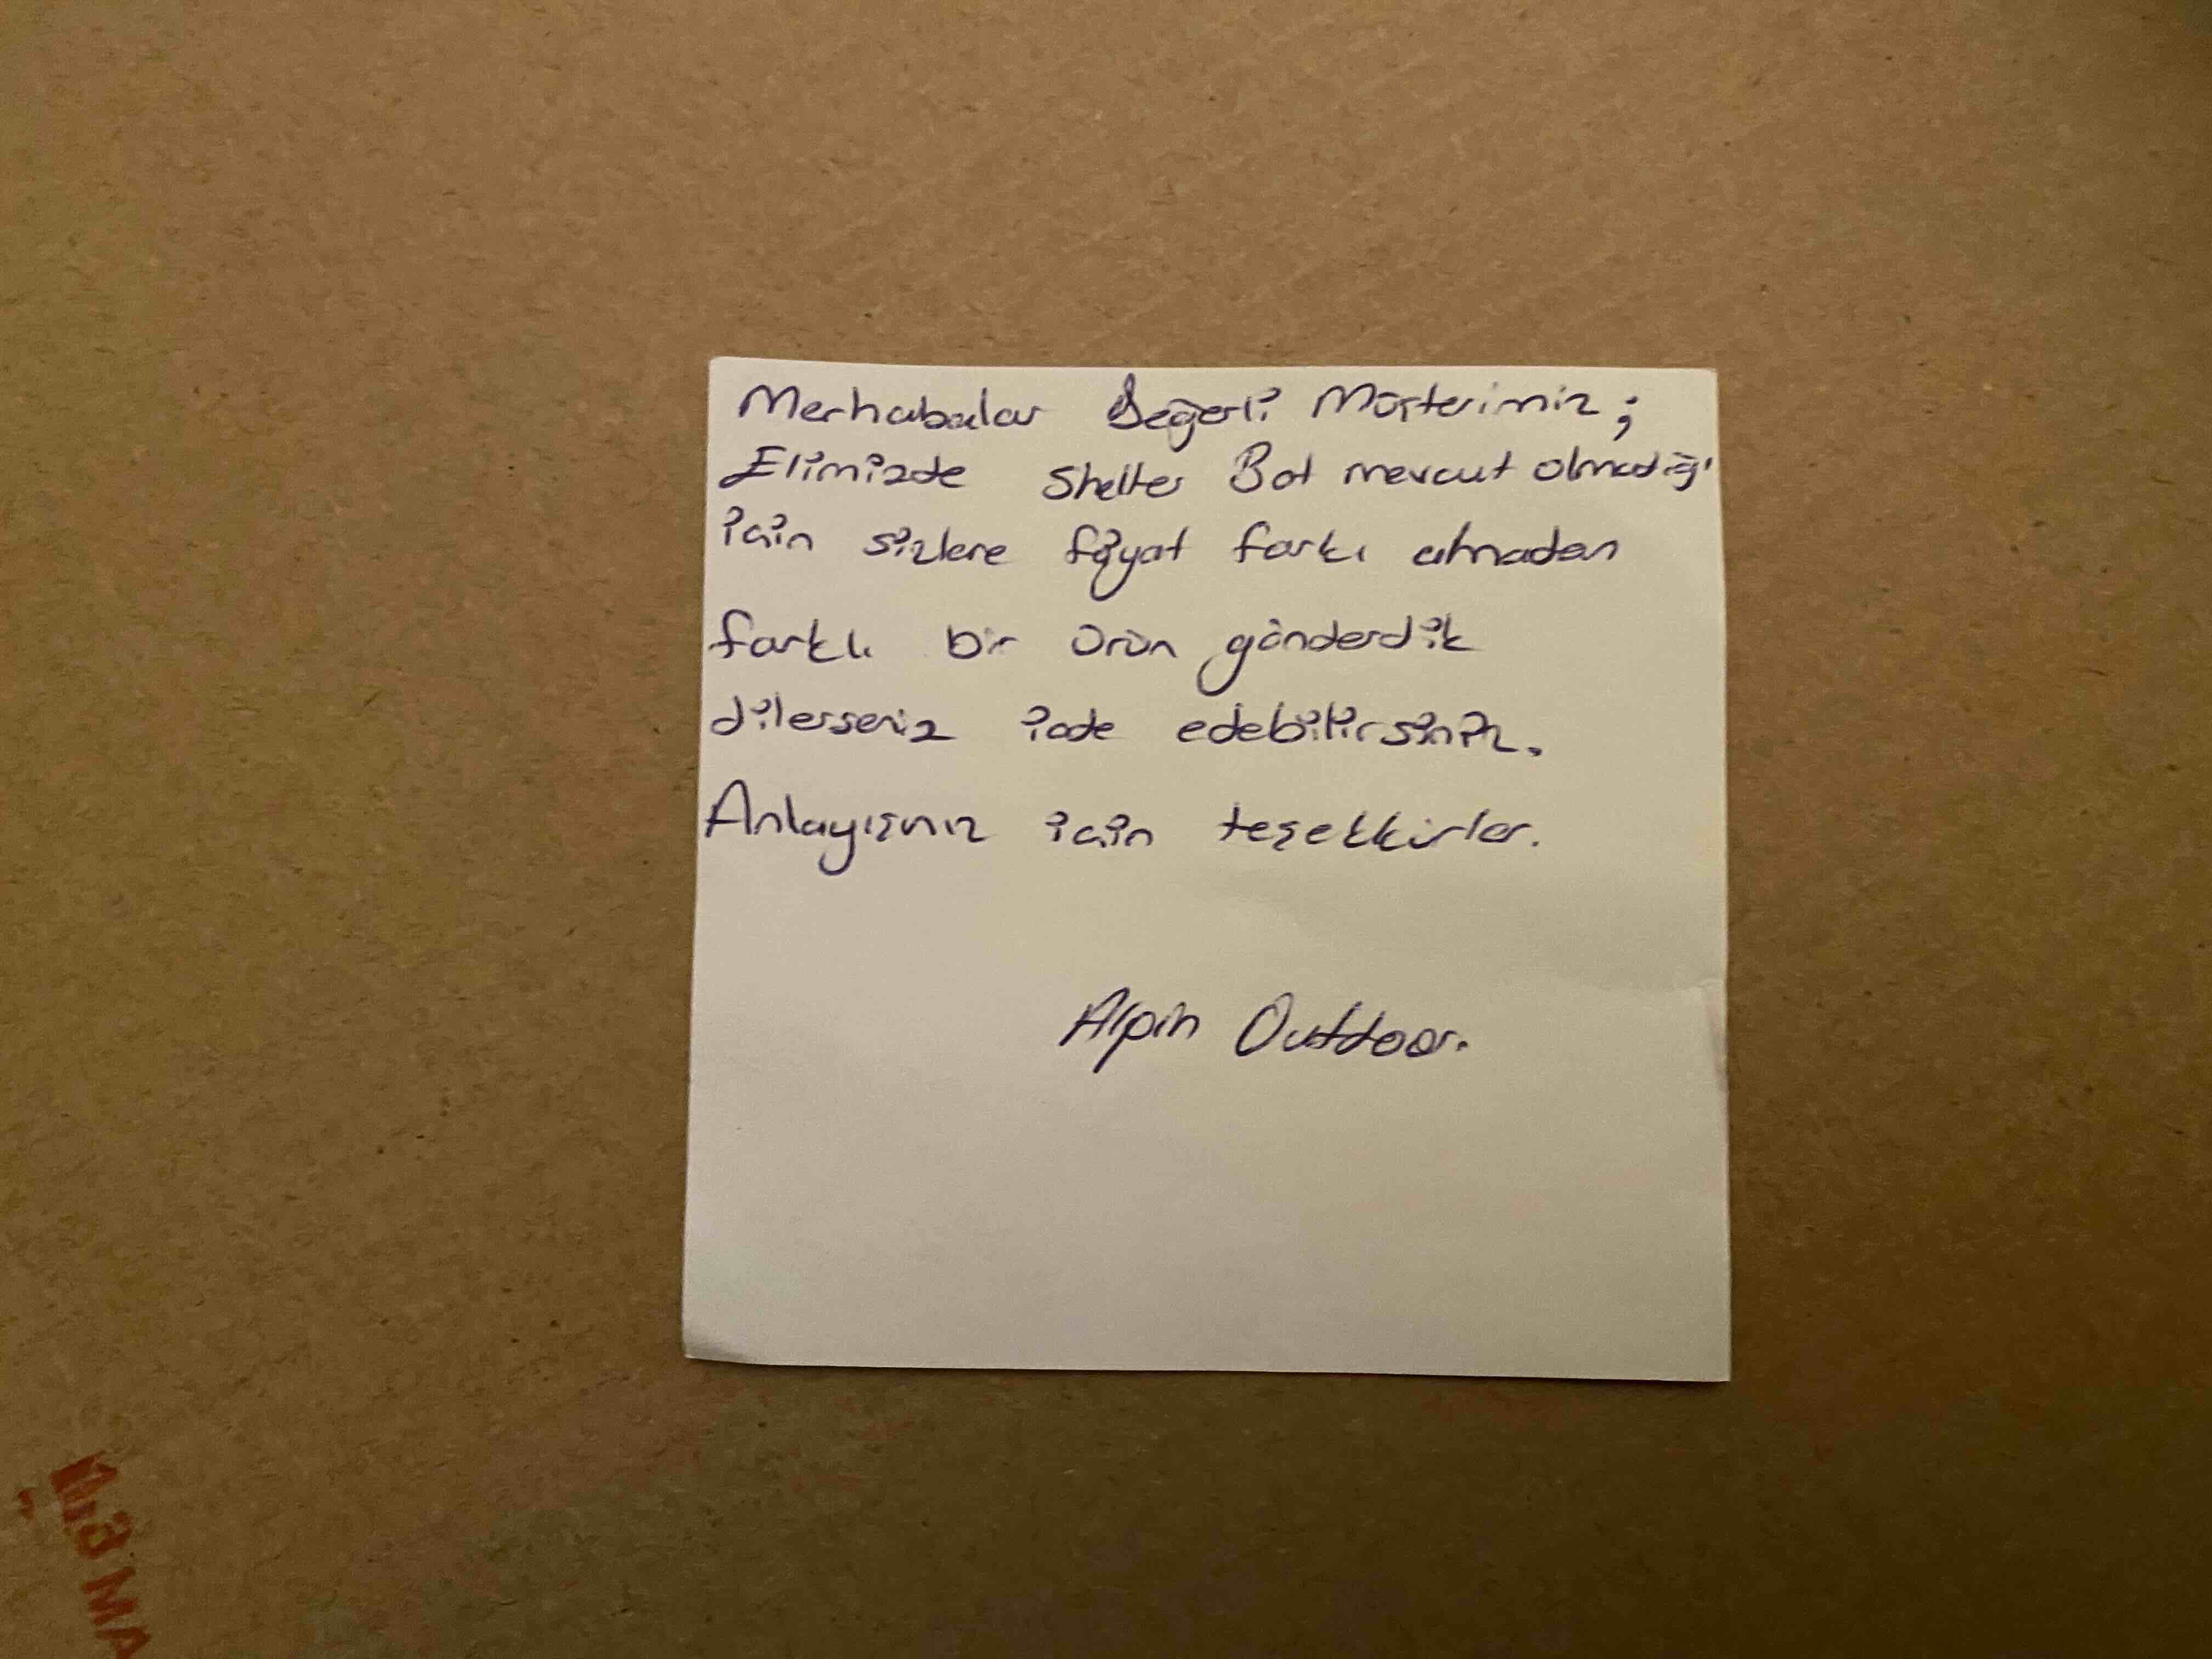 Merhabalar Değerli Müşterimiz;
Elimizde Shelter Bot mevcut olmadığı
için sizlere fiyat farkı almadan
farklı bir ürün gönderdik
dilerseniz iade edebilirsiniz.
Anlayışınız için teşekkürler.
Alpin Outdoor.